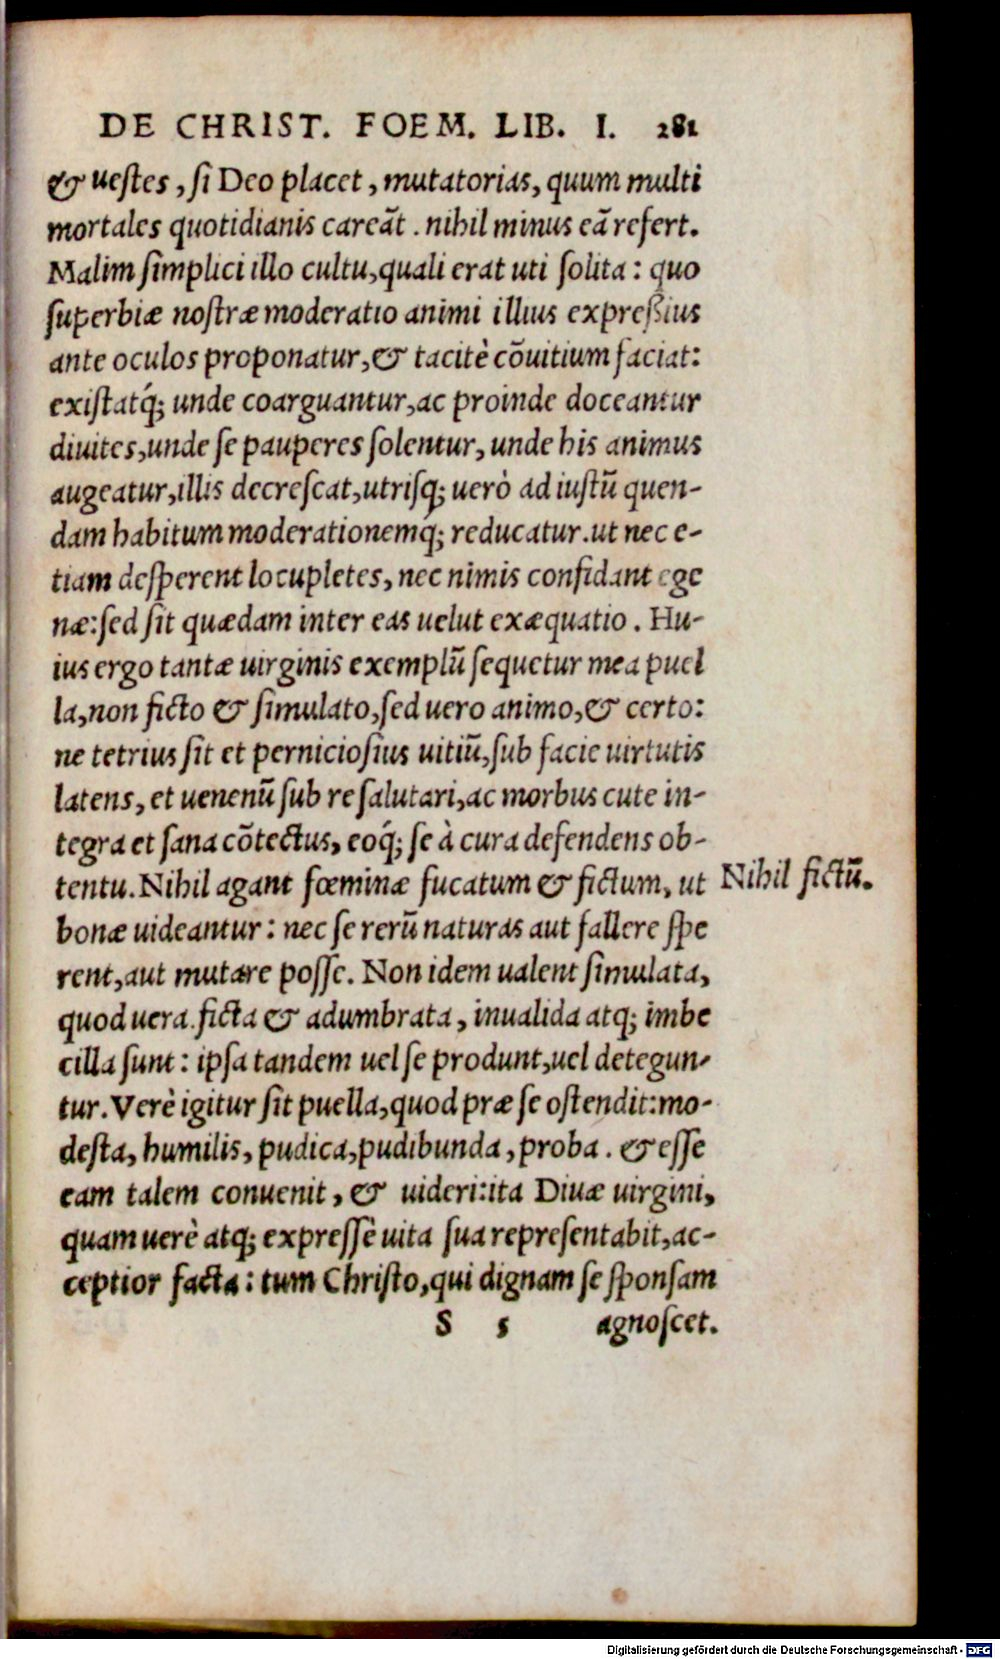 DE CHRIST. FOEM. LIB. I. 281
& uestes, si Deo placet, mutatorias, quum multi
mortales quotidianis careãt. nihil minus eã refert.
Malim simplici illo cultu, quali erat uti solita: quo
superbiæ nostræ moderatio animi illius expreßius
ante oculos proponatur, & tacitè cõuitium faciat:
existatq́; unde coarguantur, ac proinde doceantur
diuites, unde se pauperes solentur, unde his animus
augeatur, illis decrescat, utrisq; uerò ad iustũ quen-
dam habitum moderationemq́; reducatur. ut nec e-
tiam desperent locupletes, nec nimis confidant ege
næ: sed sit quædam inter eas uelut exæquatio. Hu-
ius ergo tantæ uirginis exemplũ sequetur mea puel
la, non ficto & simulato, sed uero animo, & certo:
ne tetrius sit et perniciosius uitiũ, sub facie uirtutis
latens, et uenenũ sub re salutari, ac morbus cute in-
tegra et sana cõtectus, eoq́; se à cura defendens ob-
tentu. Nihil agant fœminæ fucatum & fictum, ut
Nihil fictũ.
bonæ uideantur: nec se rerũ naturas aut fallere spe
rent, aut mutare posse. Non idem ualent simulata,
quod uera. ficta & adumbrata, inualida atq; imbe
cilla sunt: ipsa tandem uel se produnt, uel detegun-
tur. Verè igitur sit puella, quod præ se ostendit: mo-
desta, humilis, pudica, pudibunda, proba. & esse
eam talem conuenit, & uideri: ita Diuæ uirgini,
quam uerè atq; expressè uita sua repræsentabit, ac-
ceptior facta: tum Christo, qui dignam se sponsam
S 5 agnoscet.
Digitalisierung gefördert durch die Deutsche Forschungsgemeinschaft - DFG